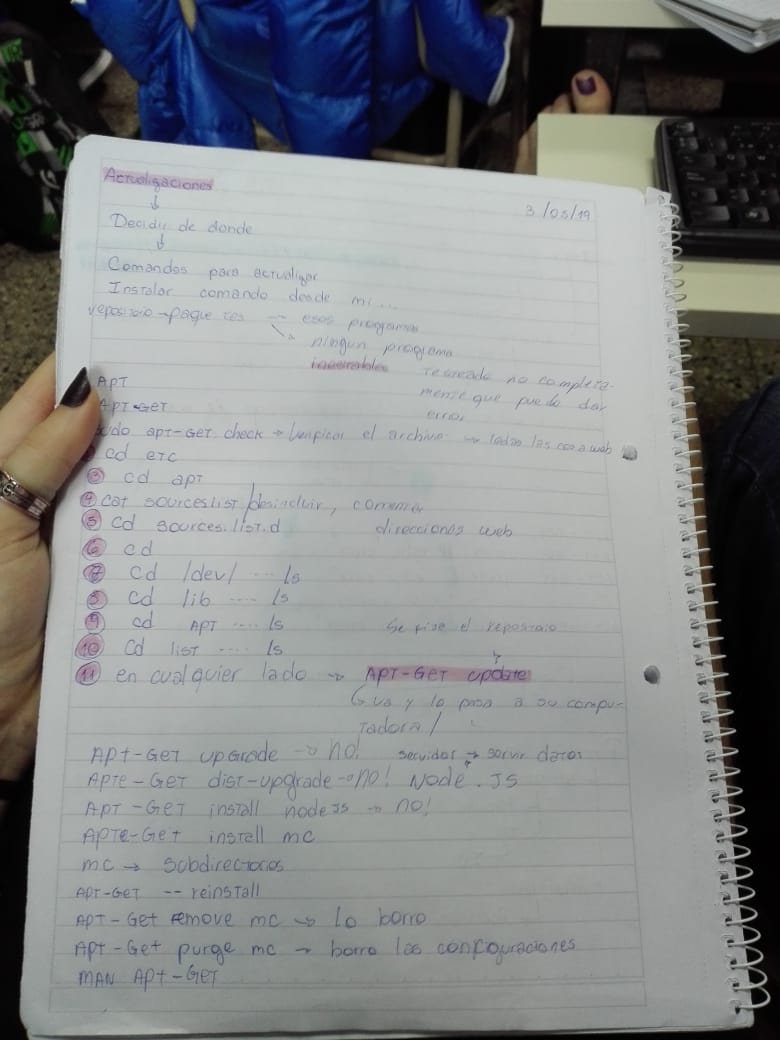 Actualizaciones
3/05/19
↓
Decidir de donde
↓
Comandos para actualizar
Instalar comando desde mi...
repositorio → paquetes → esos programas
↘ ningun programa
inestables testeado no completa-
mente que puede dar
error
APT
APT-GET
sudo apt-get check → Verificar el archivo → todas las
cd etc
③ cd apt
④ cat sources.list / desincluir, comentar
⑤ cd sources.list.d direcciones web
⑥ cd
⑦ cd /dev/ .... ls
⑧ cd lib .... ls
⑨ cd APT .... ls
Se fija el repositorio
⑩ cd list .... ls
⑪ en cualquier lado → APT-GET update
↳ va y lo pasa a su compu-
tadora/
APt-Get upgrade → no! servidor → servir datos
APTe-Get dist-upgrade → no! Node.JS
APT-GET install nodeJS → no!
APTe-Get install mc
mc → subdirectorios
APT-GET -- reinstall
APT-Get remove mc → lo borro
APT-Get purge mc → borro las configuraciones
MAN APt-GET